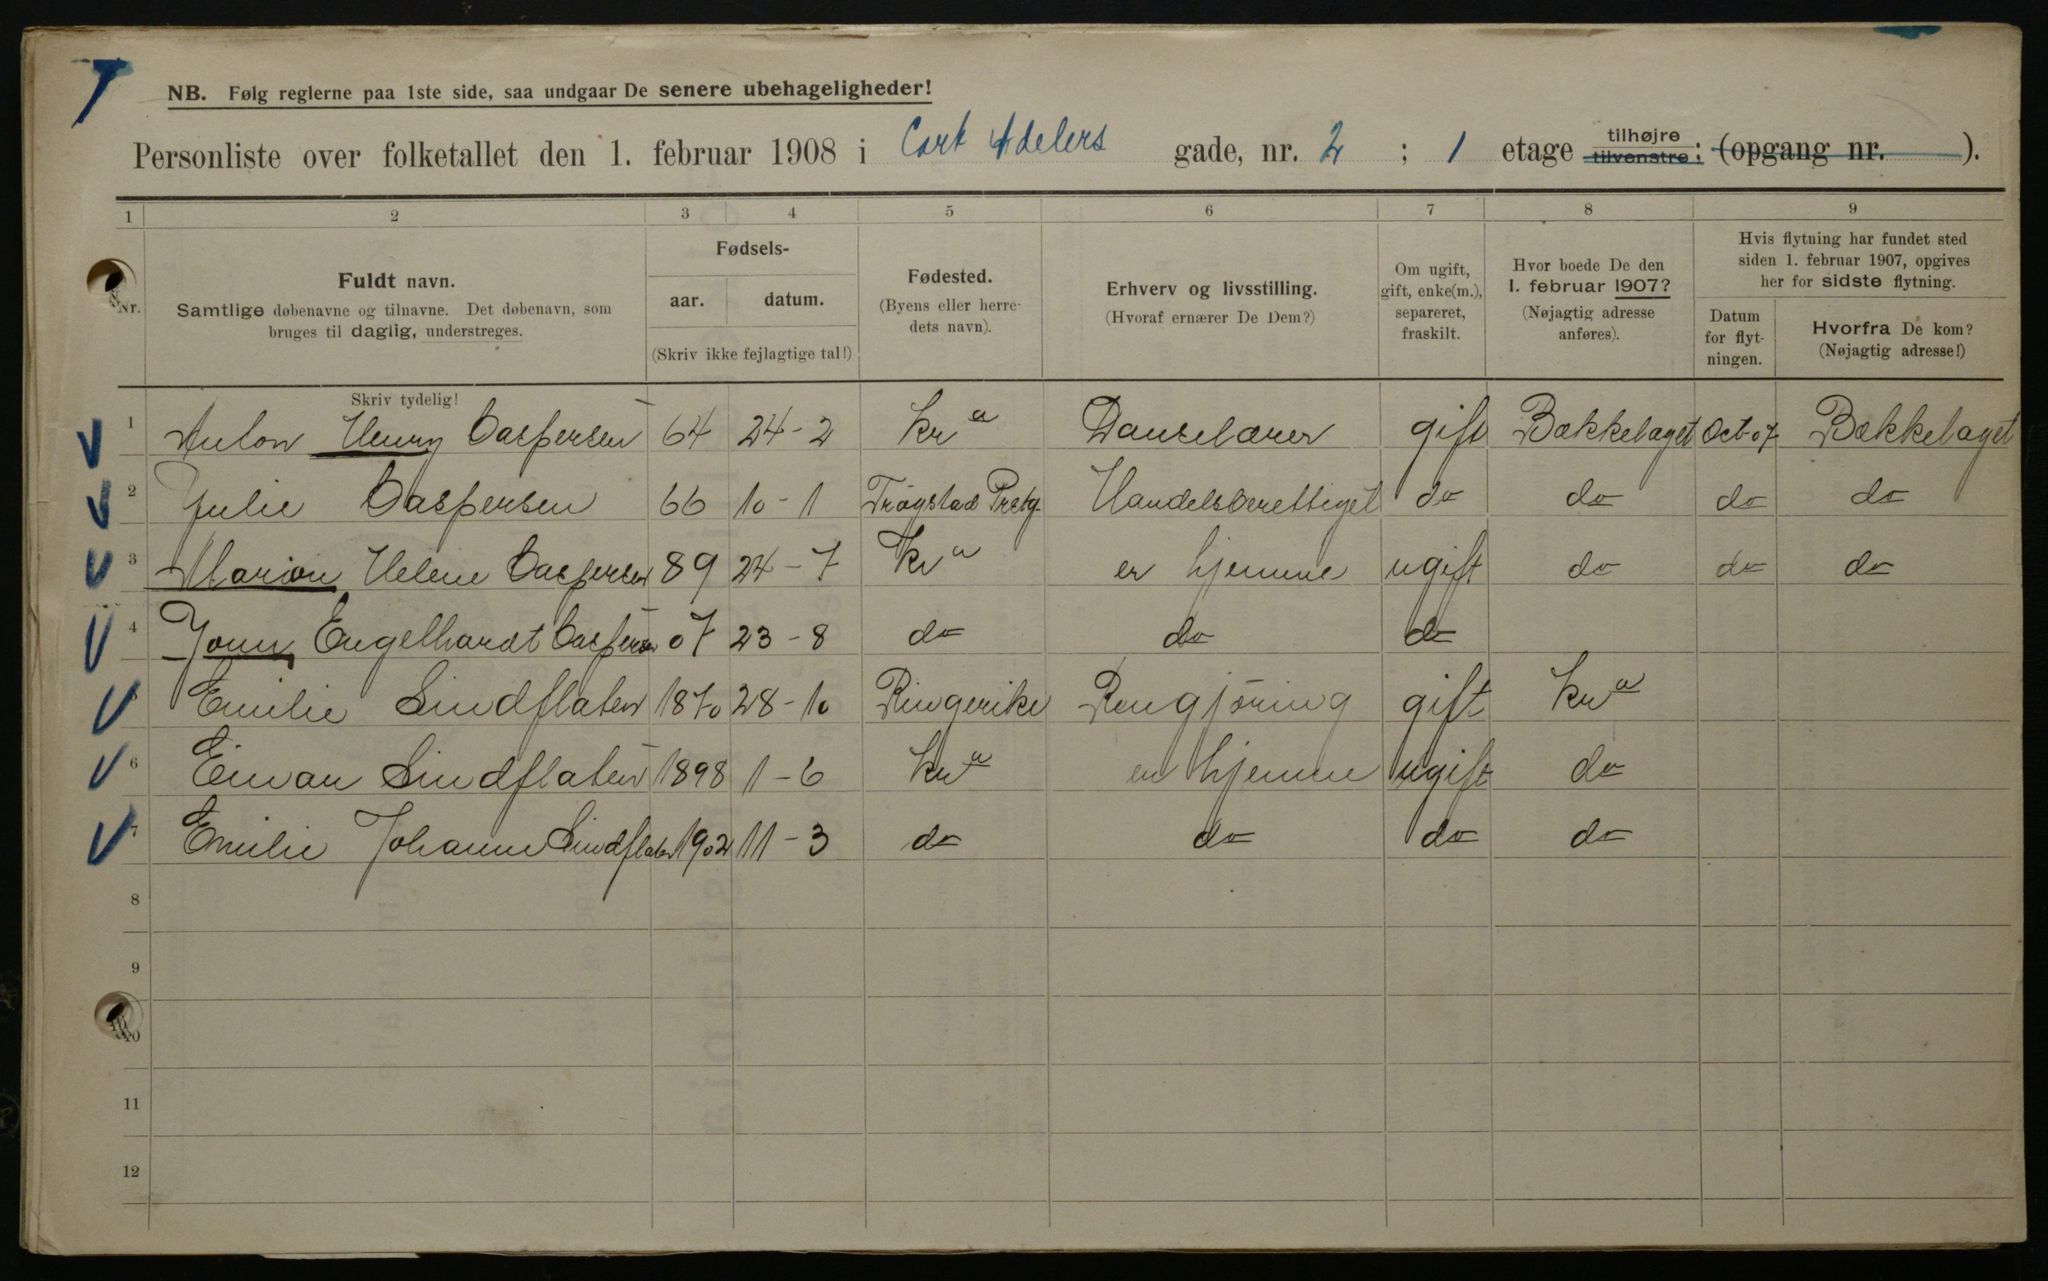 NB. Følg reglerne paa 1ste side, saa undgaar De senere ubehageligheder!
Personliste over folketallet den 1. februar 1908 i Cort Adelers gade, nr. 2 ; 1 etage tilhøjre tilvenstre; (opgang nr. ).
1 2 3 4 5 6 7 8 9
Nr.
Fuldt navn.
Samtlige døbenavne og tilnavne. Det døbenavn, som
bruges til daglig, understreges.
Skriv tydelig!
Fødsels-
aar. datum.
(Skriv ikke fejlagtige tal!)
Fødested.
(Byens eller herre-
dets navn).
Erhverv og livsstilling.
(Hvoraf ernærer De Dem?)
Om ugift,
gift, enke(m.),
separeret,
fraskilt.
Hvor boede De den
1. februar 1907?
(Nøjagtig adresse
anføres).
Hvis flytning har fundet sted
siden 1. februar 1907, opgives
her for sidste flytning.
Datum
for flyt-
ningen.
Hvorfra De kom?
(Nøjagtig adresse!)
1 Anton Henry Caspersen 64 24-2 Kra Danselærer gift Bækkelaget Oct. 07 Bækkelaget
2 Julie Caspersen 66 10-1 Trøgstad Prstg. Handelsberettiget do do do do
3 Marion Helene Caspersen 89 24-7 Kra er hjemme ugift do do do
4 Engelhardt Caspersen 07 23-8 do do do
5 Emilie Lindflaten 1870 28-10 Ringerike Rengjøring gift Kra
6 Einar Lindflaten 1898 1-6 Kra er hjemme ugift do
7 Emilie Johanne Lindflaten 1902 11-3 do do do do
8
9
10
11
12